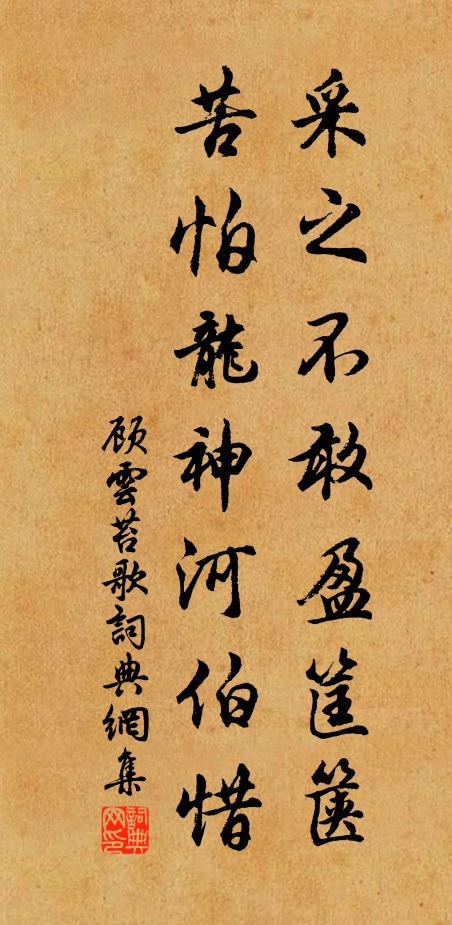 采之不敢盈筐箧
苦怕龍神河伯惜
顾雲苔歌詞典網集
詞典网印